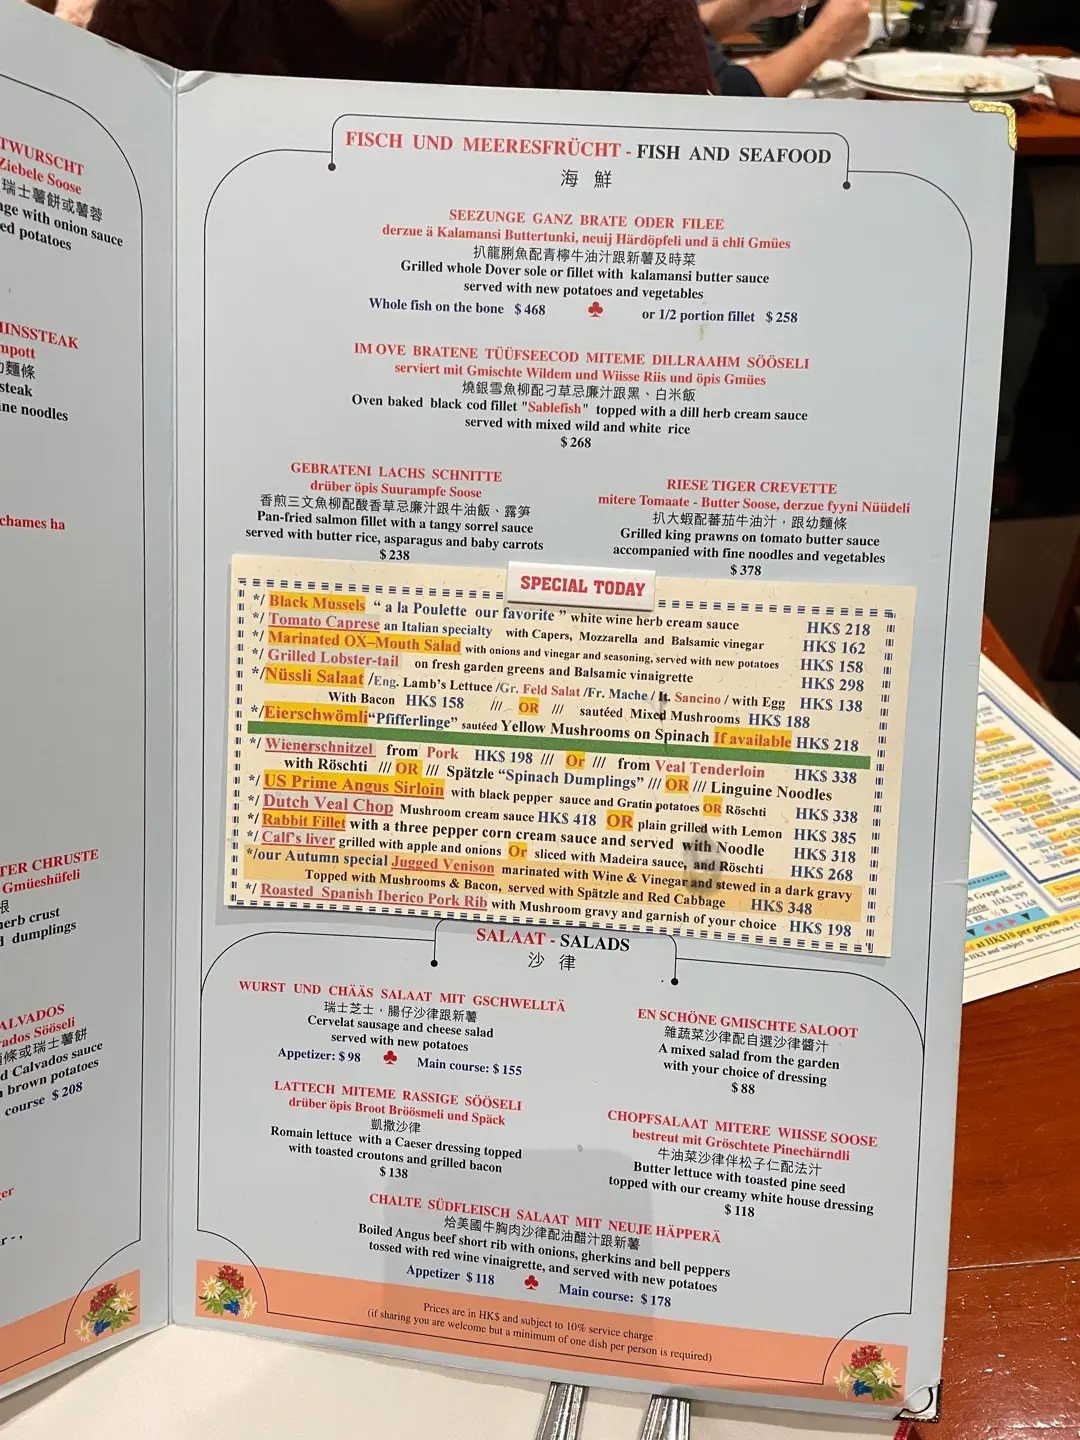 TWURSCHT
Ziebele Soose
瑞士薯餅或薯蓉
age with onion sauce
ed potatoes
INSSTEAK
mpott
幼麵條
steak
ine noodles
chames ha
TER CHRUSTE
Gmüeshüfeli
根
herb crust
d dumplings
ALVADOS
vados Sööseli
條或瑞士薯餅
d Calvados sauce
n brown potatoes
course $ 208
FISCH UND MEERESFRÜCHT - FISH AND SEAFOOD
海 鮮
SEEZUNGE GANZ BRATE ODER FILEE
derzue ä Kalamansi Buttertunki, neuij Härdöpfeli und ä chli Gmües
扒龍脷魚配青檸牛油汁跟新薯及時菜
Grilled whole Dover sole or fillet with kalamansi butter sauce
served with new potatoes and vegetables
Whole fish on the bone $ 468 ♣ or 1/2 portion fillet $ 258
IM OVE BRATENE TÜÜFSEECOD MITEME DILLRAAHM SÖÖSELI
serviert mit Gmischte Wildem und Wiisse Riis und öpis Gmües
燒銀雪魚柳配刁草忌廉汁跟黑、白米飯
Oven baked black cod fillet "Sablefish" topped with a dill herb cream sauce
served with mixed wild and white rice
$ 268
GEBRATENI LACHS SCHNITTE
drüber öpis Suurampfe Soose
香煎三文魚柳配酸香草忌廉汁跟牛油飯、露笋
Pan-fried salmon fillet with a tangy sorrel sauce
served with butter rice, asparagus and baby carrots
$ 238
RIESE TIGER CREVETTE
mitere Tomaate - Butter Soose, derzue fyyni Nüüdeli
扒大蝦配蕃茄牛油汁，跟幼麵條
Grilled king prawns on tomato butter sauce
accompanied with fine noodles and vegetables
$ 378
SPECIAL TODAY
*/ Black Mussels “ a la Poulette our favorite ” white wine herb cream sauce HK$ 218
*/ Tomato Caprese an Italian specialty with Capers, Mozzarella and Balsamic vinegar HK$ 162
*/ Marinated OX–Mouth Salad with onions and vinegar and seasoning, served with new potatoes HK$ 158
*/ Grilled Lobster-tail on fresh garden greens and Balsamic vinaigrette HK$ 298
*/Nüssli Salaat /Eng. Lamb's Lettuce /Gr. Feld Salat /Fr. Mache / It. Sancino / with Egg HK$ 138
With Bacon HK$ 158 /// OR /// sautéed Mixed Mushrooms HK$ 188
*/Eierschwömli“Pfifferlinge” sautéed Yellow Mushrooms on Spinach If available HK$ 218
*/ Wienerschnitzel from Pork HK$ 198 /// Or /// from Veal Tenderloin HK$ 338
with Röschti /// OR /// Spätzle “Spinach Dumplings” /// OR /// Linguine Noodles
*/ US Prime Angus Sirloin with black pepper sauce and Gratin potatoes OR Röschti HK$ 338
*/ Dutch Veal Chop Mushroom cream sauce HK$ 418 OR plain grilled with Lemon HK$ 385
*/ Rabbit Fillet with a three pepper corn cream sauce and served with Noodle HK$ 318
*/ Calf's liver grilled with apple and onions Or sliced with Madeira sauce, and Röschti HK$ 268
*/our Autumn special Jugged Venison marinated with Wine & Vinegar and stewed in a dark gravy
Topped with Mushrooms & Bacon, served with Spätzle and Red Cabbage HK$ 348
*/ Roasted Spanish Iberico Pork Rib with Mushroom gravy and garnish of your choice HK$ 198
SALAAT - SALADS
沙 律
WURST UND CHÄÄS SALAAT MIT GSCHWELLTÄ
瑞士芝士，腸仔沙律跟新薯
Cervelat sausage and cheese salad
served with new potatoes
Appetizer: $ 98 ♣ Main course: $ 155
EN SCHÖNE GMISCHTE SALOOT
雜蔬菜沙律配自選沙律醬汁
A mixed salad from the garden
with your choice of dressing
$ 88
LATTECH MITEME RASSIGE SÖÖSELI
drüber öpis Broot Bröösmeli und Späck
凱撒沙律
Romain lettuce with a Caeser dressing topped
with toasted croutons and grilled bacon
$ 138
CHOPFSALAAT MITERE WIISSE SOOSE
bestreut mit Gröschtete Pinechärndli
牛油菜沙律伴松子仁配法汁
Butter lettuce with toasted pine seed
topped with our creamy white house dressing
$ 118
CHALTE SÜDFLEISCH SALAAT MIT NEUJE HÄPPERÄ
烚美國牛胸肉沙律配油醋汁跟新薯
Boiled Angus beef short rib with onions, gherkins and bell peppers
tossed with red wine vinaigrette, and served with new potatoes
Appetizer $ 118 ♣ Main course: $ 178
Prices are in HK$ and subject to 10% service charge
(if sharing you are welcome but a minimum of one dish per person is required)